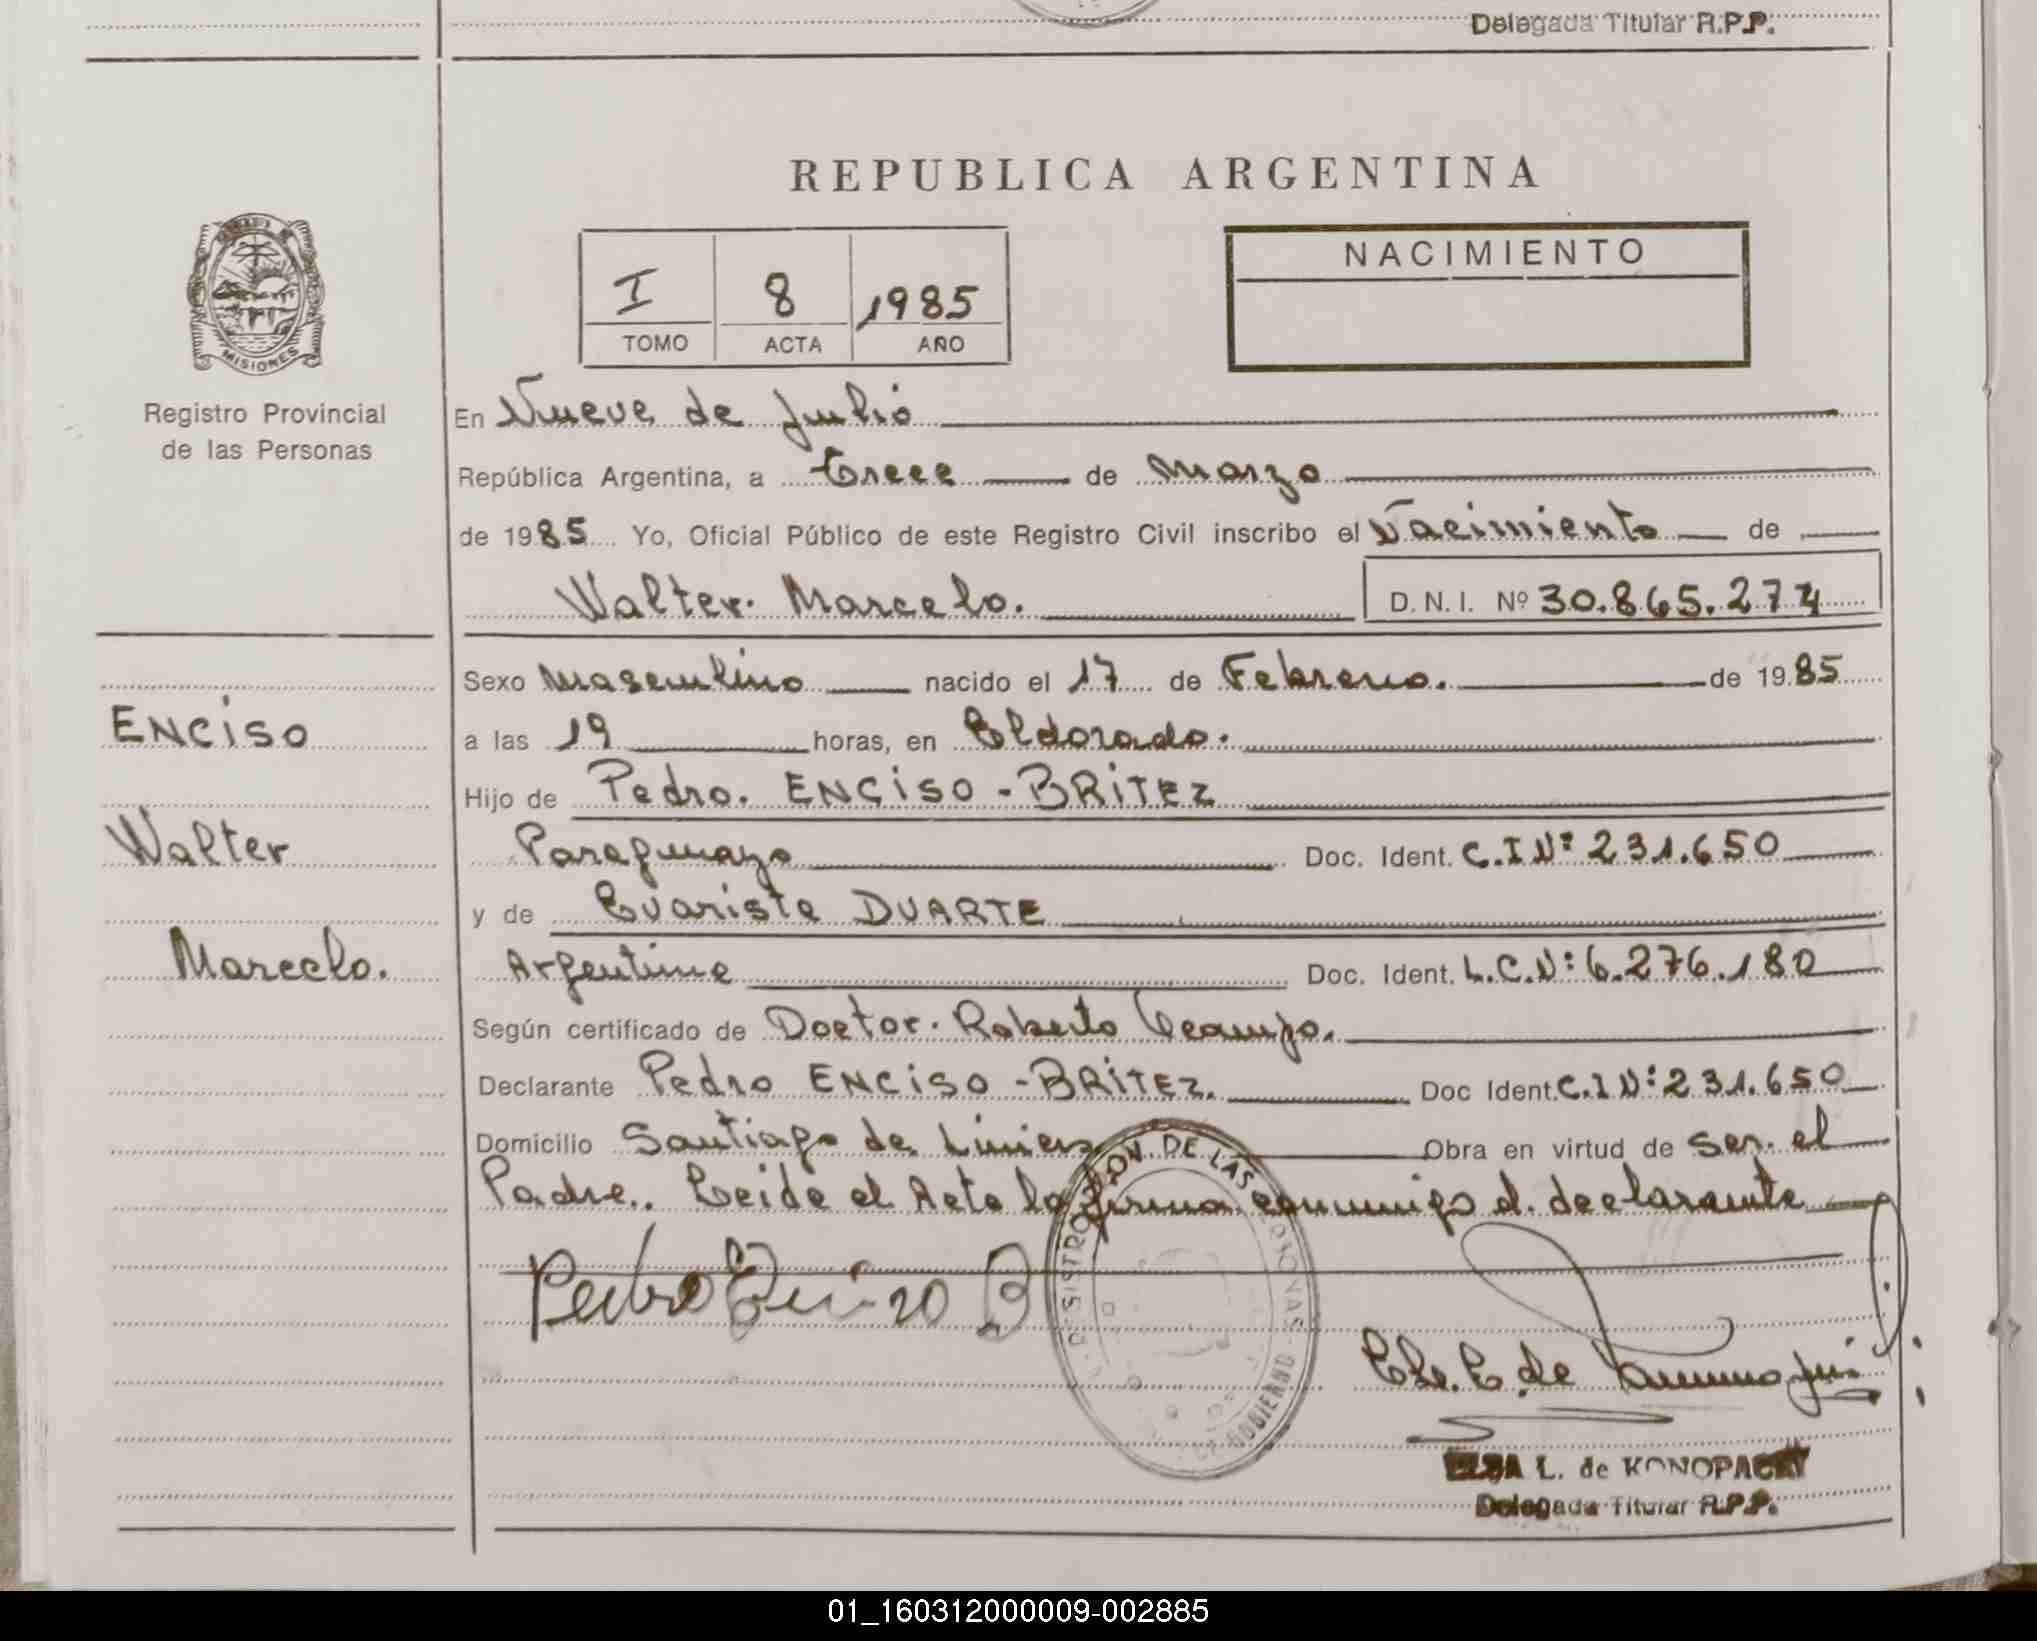 Delegada Titular R.P.P.
REPUBLICA ARGENTINA
MISIONES
Registro Provincial
de las Personas
I 8 1985
TOMO ACTA AÑO
NACIMIENTO
En Nueve de Julio
República Argentina, a Trece de Marzo
de 1985 Yo, Oficial Público de este Registro Civil inscribo el Nacimiento de
Walter Marcelo. D.N.I. Nº 30.865.274
Sexo Masculino nacido el 17 de Febrero. de 1985
ENCISO
a las 19 horas, en Eldorado.
Hijo de Pedro. ENCISO - BRITEZ
Walter
Paraguayo Doc. Ident. C.I Nº 231.650
y de Evarista DUARTE
Marcelo.
Argentina Doc. Ident. L.C.Nº 6.276.180
Según certificado de Doctor. Roberto Ocampo.
Declarante Pedro ENCISO - BRITEZ. Doc Ident. C.I Nº 231.650
Domicilio Santiago de Liniers Obra en virtud de ser. el
Padre. Leida el Acta la firma conmigo el declarante
Pedro Enciso B
DE LAS
GOBIERNO
ELSA L. de KONOPACKI
Delegada Titular R.P.P.
01_160312000009-002885